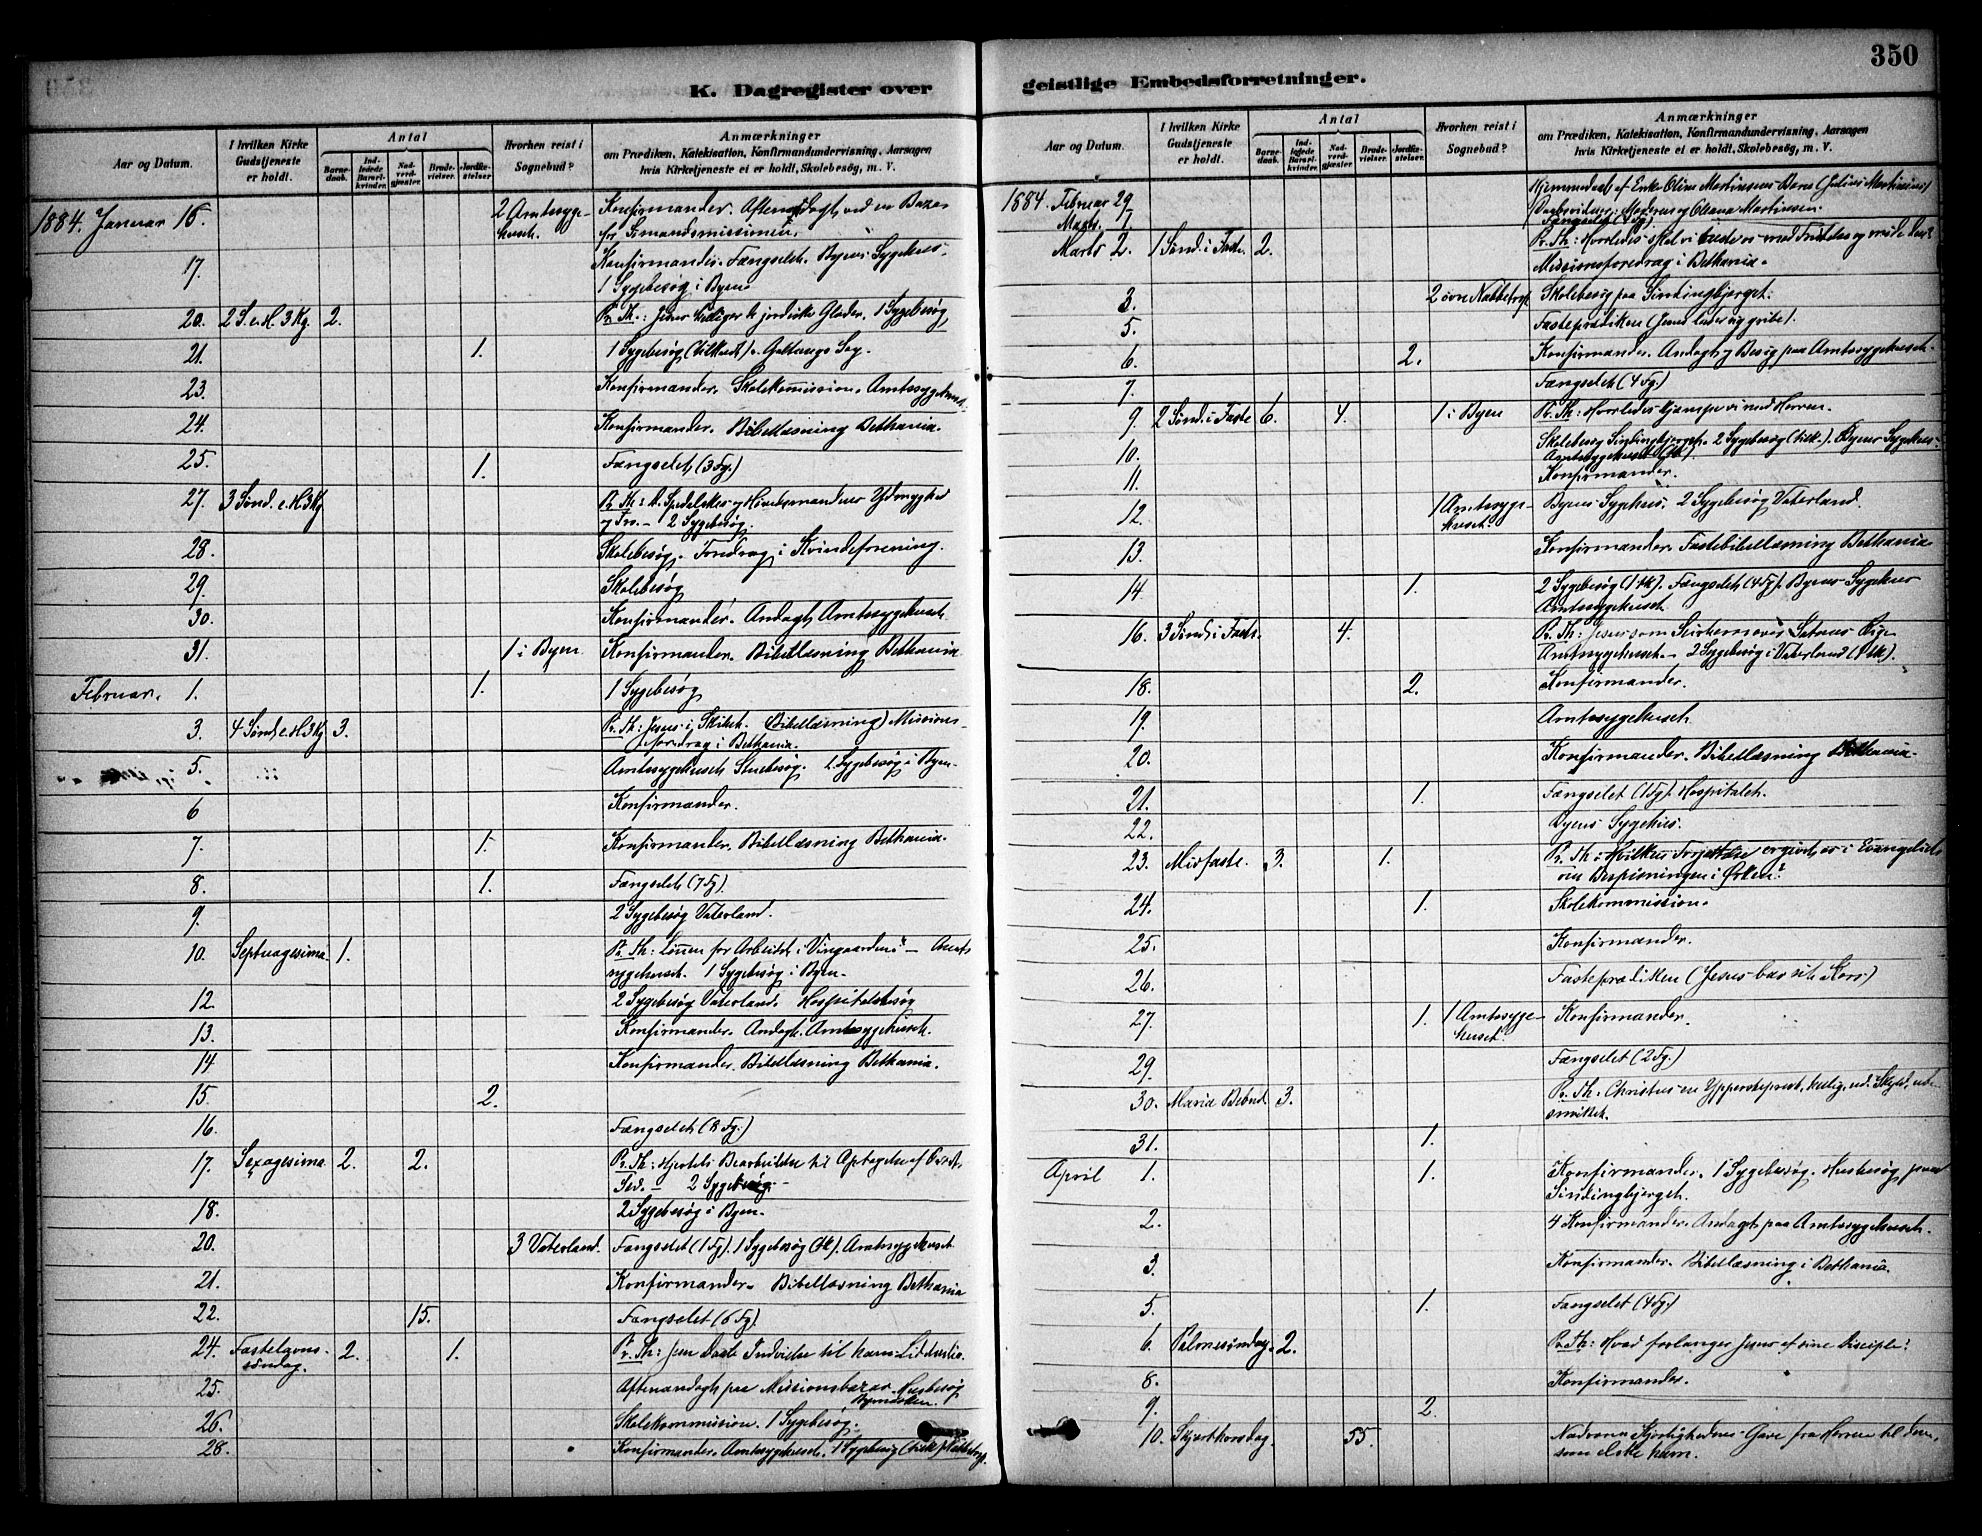 350
K. Dagregister over
Aar og Datum.
I hvilken Kirke Gudstjeneste er holdt.
Antal
Barnedaab.
Indledede Barselkvinder.
Nadverdgjæster.
Brudevielser.
Jordfæstelser.
Hvorhen reist i Sognebud?
Anmærkninger
om Prædiken, Katekisation, Konfirmandundervisning, Aarsagen
hvis Kirketjeneste ei er holdt, Skolebesøg, m. V.
1884. Januar 16. 2 Amtssygehuset. Konfirmander. Aftenandagt ved en Bazar
for Sømandsmissionen.
17. Konfirmander. Fængselet. Byens Sygehus.
1 Sygebesøg i Byen.
20. 2 S. e. H. 3 Kg. 2. Pr. Th.: Jesus helliger de jordiske Glæder. 1 Sygebesøg
21. 1. 1 Sygebesøg
23. Konfirmander. Skolekommission. Amtssygehuset.
24. Konfirmander. Bibellæsning Bethania.
25. 1. Fængselet (3 Fg.)
27. 3 Sønd. e. H 3 Kg. Pr. Th.: D. Spedalskes og Høvedsmandens Ydmyghed
og Tro. – 2 Sygebesøg.
28. Skolebesøg. Foredrag i Kvindeforening.
29. Skolebesøg
30. Konfirmander. Andagt, Amtssygehuset.
31. 1 i Byen. Konfirmander. Bibellæsning Bethania.
Februar. 1. 1. 1 Sygebesøg
3. 4 Sønd e. H. 3 Kg. 3. Pr. Th: Jesus i Skibet. (Bibellæsning) Missionsforedrag
i Bethania.
5. Amtssygehuset 2 Sygebesøg i Byen.
6 Konfirmander.
7. 1. Konfirmander. Bibellæsning Bethania.
8. 1. Fængselet (7 Fg).
9. 2 Sygebesøg Vaterland.
10. Septuagesima 1. Pr. Th: Lønnen for Arbeidet i Vingaarden. – Amtssygehuset.
1 Sygebesøg i Byen.
12. 2 Sygebesøg Vaterland. Hospitalsbesøg
13. Konfirmander. Andagt. Amtssygehuset.
14 Konfirmander. Bibellæsning Bethania.
15. 2.
16. Fængselet (8 Fg.)
17. Sexagesima 2. 2. Pr. Th: Hjertets Bearbeidelse til Optagelse af
2 Sygebesøg.
18. 2 Sygebesøg i Byen.
20. 3 Vaterland. Fængselet (1 Fg). 1 Sygebesøg (tk). Amtssygehuset
21. Konfirmander. Bibellæsning Bethania
22. 15. Fængselet (6 Fg).
24. Fastelavnssøndag. 2. 1. Pr. Th: Jesu Daabs Indvielse til hans Lidelse.
25. Aftenandagt paa Missionsbazar. Husbesøg
Bymarken.
26. Skolekommission. 1 Sygebesøg.
28. Konfirmander. Amtssygehuset. 1 Sygebesøg
geistlige Embedsforretninger.
350
Aar og Datum.
I hvilken Kirke Gudstjeneste er holdt.
Antal
Barnedaab.
Indledede Barselkvinder.
Nadverdgjæster.
Brudevielser.
Jordfæstelser.
Hvorhen reist i Sognebud?
Anmærkninger
om Prædiken, Katekisation, Konfirmandundervisning, Aarsagen
hvis Kirketjeneste ei er holdt, Skolebesøg, m. V.
1884. Februar 29 Hjemmedaab af Enke Oline Martinsens Barn (Julius Martinius)
Daabsvidner: Moderen og Oleana Martinsen.
Marts. 1. Fængselet (4 Fg.)
Marts 2. 1 Sønd. i Faste. 2. Pr. Th: Hvorledes skal vi
Missionsforedrag i Bethania.
3. 2 Skolebesøg paa Sindingbjerget.
5. Fasteprædiken (Jesus lader sig gribe).
6. 2. Konfirmander. Andagt og Besøg paa Amtssygehuset.
7. Fængselet (4 Fg.)
9. 2 Sønd. i Faste 6. 4. 1 i Byen Pr. Th: Hvorledes kjæmpe vi med Herren.
10. Skolebesøg Sindingbjerget. 2 Sygebesøg (tilk.). Byens Sygehus.
Amtssygehuset
11. Konfirmander.
12. 1 Amtssygehuset. Byens Sygehus. 2 Sygebesøg Vaterland.
13. Konfirmander. Fastebibellæsning Bethania.
14 1. 2 Sygebesøg (1 tk). Fængselet (4 Fg). Byens Sygehus
Amtssygehuset.
16. 3 Sønd. i Faste. 4. Pr. Th: Jesus som Seirherre over Satans Rige
Amtssygehuset. – 2 Sygebesøg i Vaterland (1 tk).
18. 2. Konfirmander.
19. Amtssygehuset.
20. Konfirmander. Bibellæsning Bethania.
21. 1. Fængselet (1 Fg). Hospitalet.
22. Byens Sygehus.
23. Midfaste. 3. 1. Pr. Th: Hvilken Forjættelse er givet os i Evangeliet
om Bespisningen i Ørken?
24. 1. Skolekommission.
25. Konfirmander.
26. Fasteprædiken (Jesus bar sit Kors)
27. 1. 1 Amtssygehuset. Konfirmander.
29. Fængselet (2 Fg.)
30. Maria Bebud. 3. Pr. Th: Christus en Ypperstepræst, hellig, ud. Skyld, ubesmittet.
31. 1.
April 1. 1. Konfirmander. 1 Sygebesøg. Husbesøg paa
Sindingbjerget.
2. 4 Konfirmander. Andagt paa Amtssygehuset.
3. Konfirmander. Bibellæsning i Bethania.
5. 1. Fængselet (4 Fg.)
6. Palmesøndag. 2. Pr. Th: Hvad forlanger Jesus af sine Disciple?
8. Konfirmander.
9. 2.
10. Skjærthorsdag. 55. Nadveren Kjærlighedens Gave fra Herren til dem,
som elske ham.